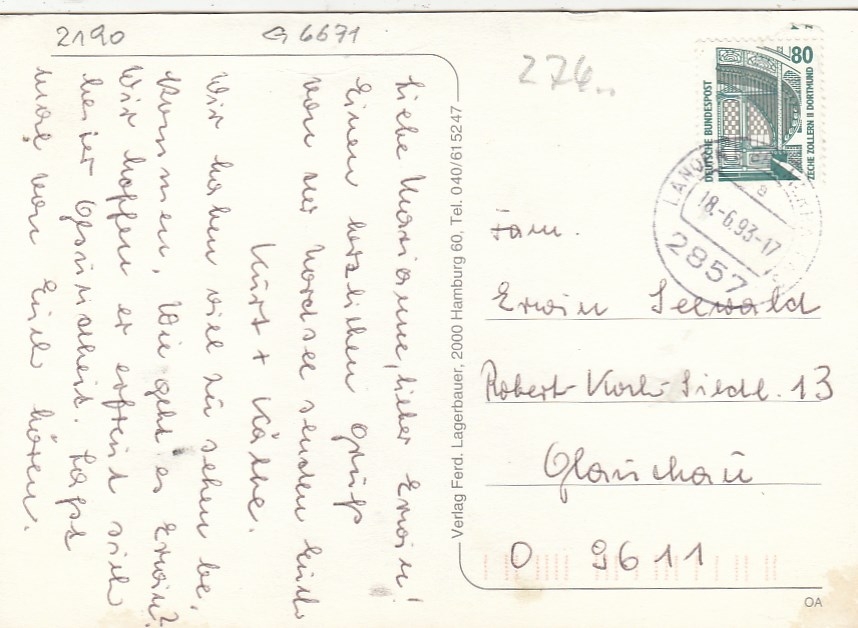 2190
G 6671
Liebe Marianne, lieber Erwin!
Einen herzlichen Gruß
von der Nordsee senden Euch
Kurt + Käthe.
Wir haben viel zu sehen be-
kommen. Wie geht es Erwin?
Wir hoffen er erfreut sich
bester Gesundheit. Laßt
mal von Euch hören.
Verlag Ferd. Lagerbauer, 2000 Hamburg 60, Tel. 040/615247
276..
80
DEUTSCHE BUNDESPOST
ZECHE ZOLLERN II DORTMUND
a
18.-6.93-17
2857
Fam.
Erwin Seewald
Robert-Koch-Siedl. 13
Glauchau
O 9611
OA